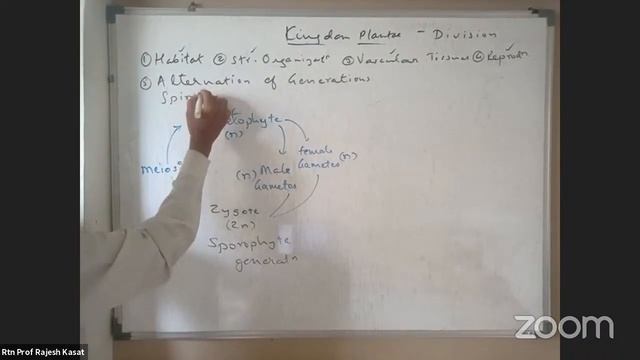 Kingdom Plantae - Division
① Habitat ② Str. Organizatn ③ Vascular Tissues ④ Reprodn
⑤ Alternation of Generations
Spir
(n)
Meios
(n) Male Gametes
female Gametes (n)
Zygote
(2n)
Sporophyte
generatn
zoom
Rtn Prof Rajesh Kasat